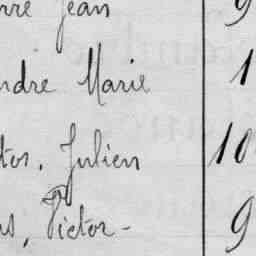 rre Jean 9
ndre Marie 1
tos, Julien 10
s, Victor - 9